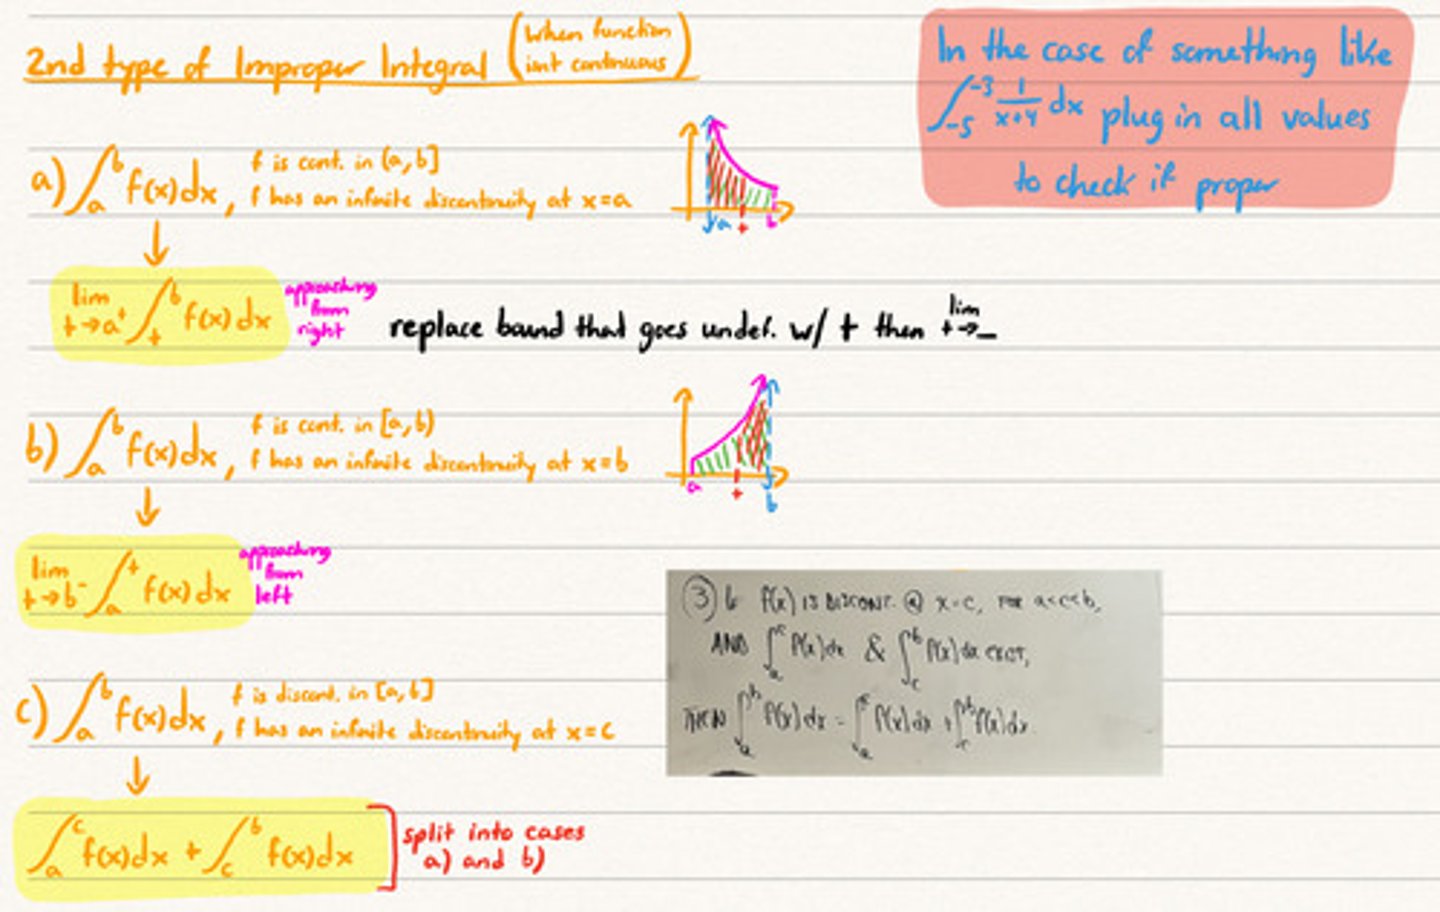 2nd type of Improper Integral (when function isnt continuous)
In the case of something like
∫_{-5}^{-3} 1/(x+4) dx plug in all values
to check if proper
a) ∫_a^b f(x)dx, f is cont. in (a,b]
f has an infinite discontinuity at x=a
a t b
lim t→a⁺ ∫_t^b f(x)dx approaching from right
replace bound that goes undef. w/ t then lim t→_
b) ∫_a^b f(x)dx, f is cont. in [a,b)
f has an infinite discontinuity at x=b
a t b
lim t→b⁻ ∫_a^t f(x)dx approaching from left
③ If f(x) IS DISCONT. @ x=c, FOR a<c<b,
AND ∫_a^c f(x)dx & ∫_c^b f(x)dx EXIST,
THEN ∫_a^b f(x)dx = ∫_a^c f(x)dx + ∫_c^b f(x)dx
c) ∫_a^b f(x)dx, f is discont. in [a,b]
f has an infinite discontinuity at x=c
∫_a^c f(x)dx + ∫_c^b f(x)dx ] split into cases
a) and b)